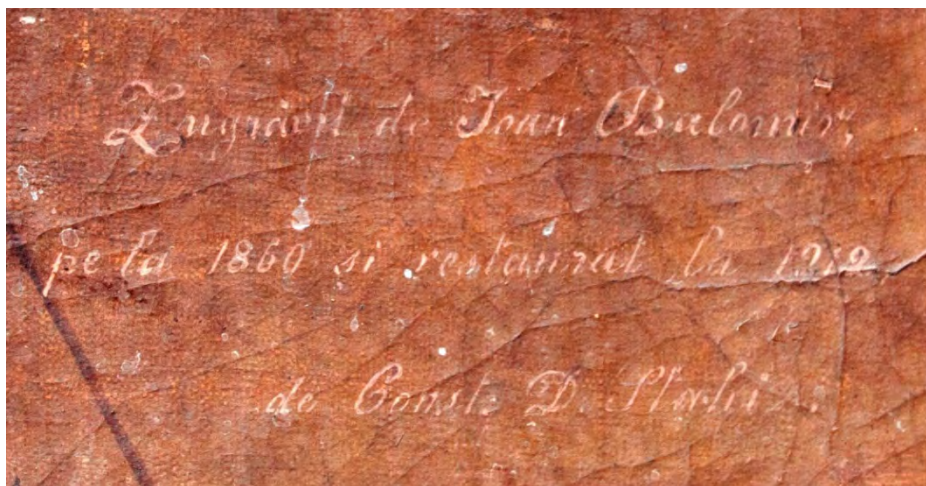 Zugrăvit de Ioan Balomir,
pe la 1860 si restaurat la
de Const. D. Stahi.